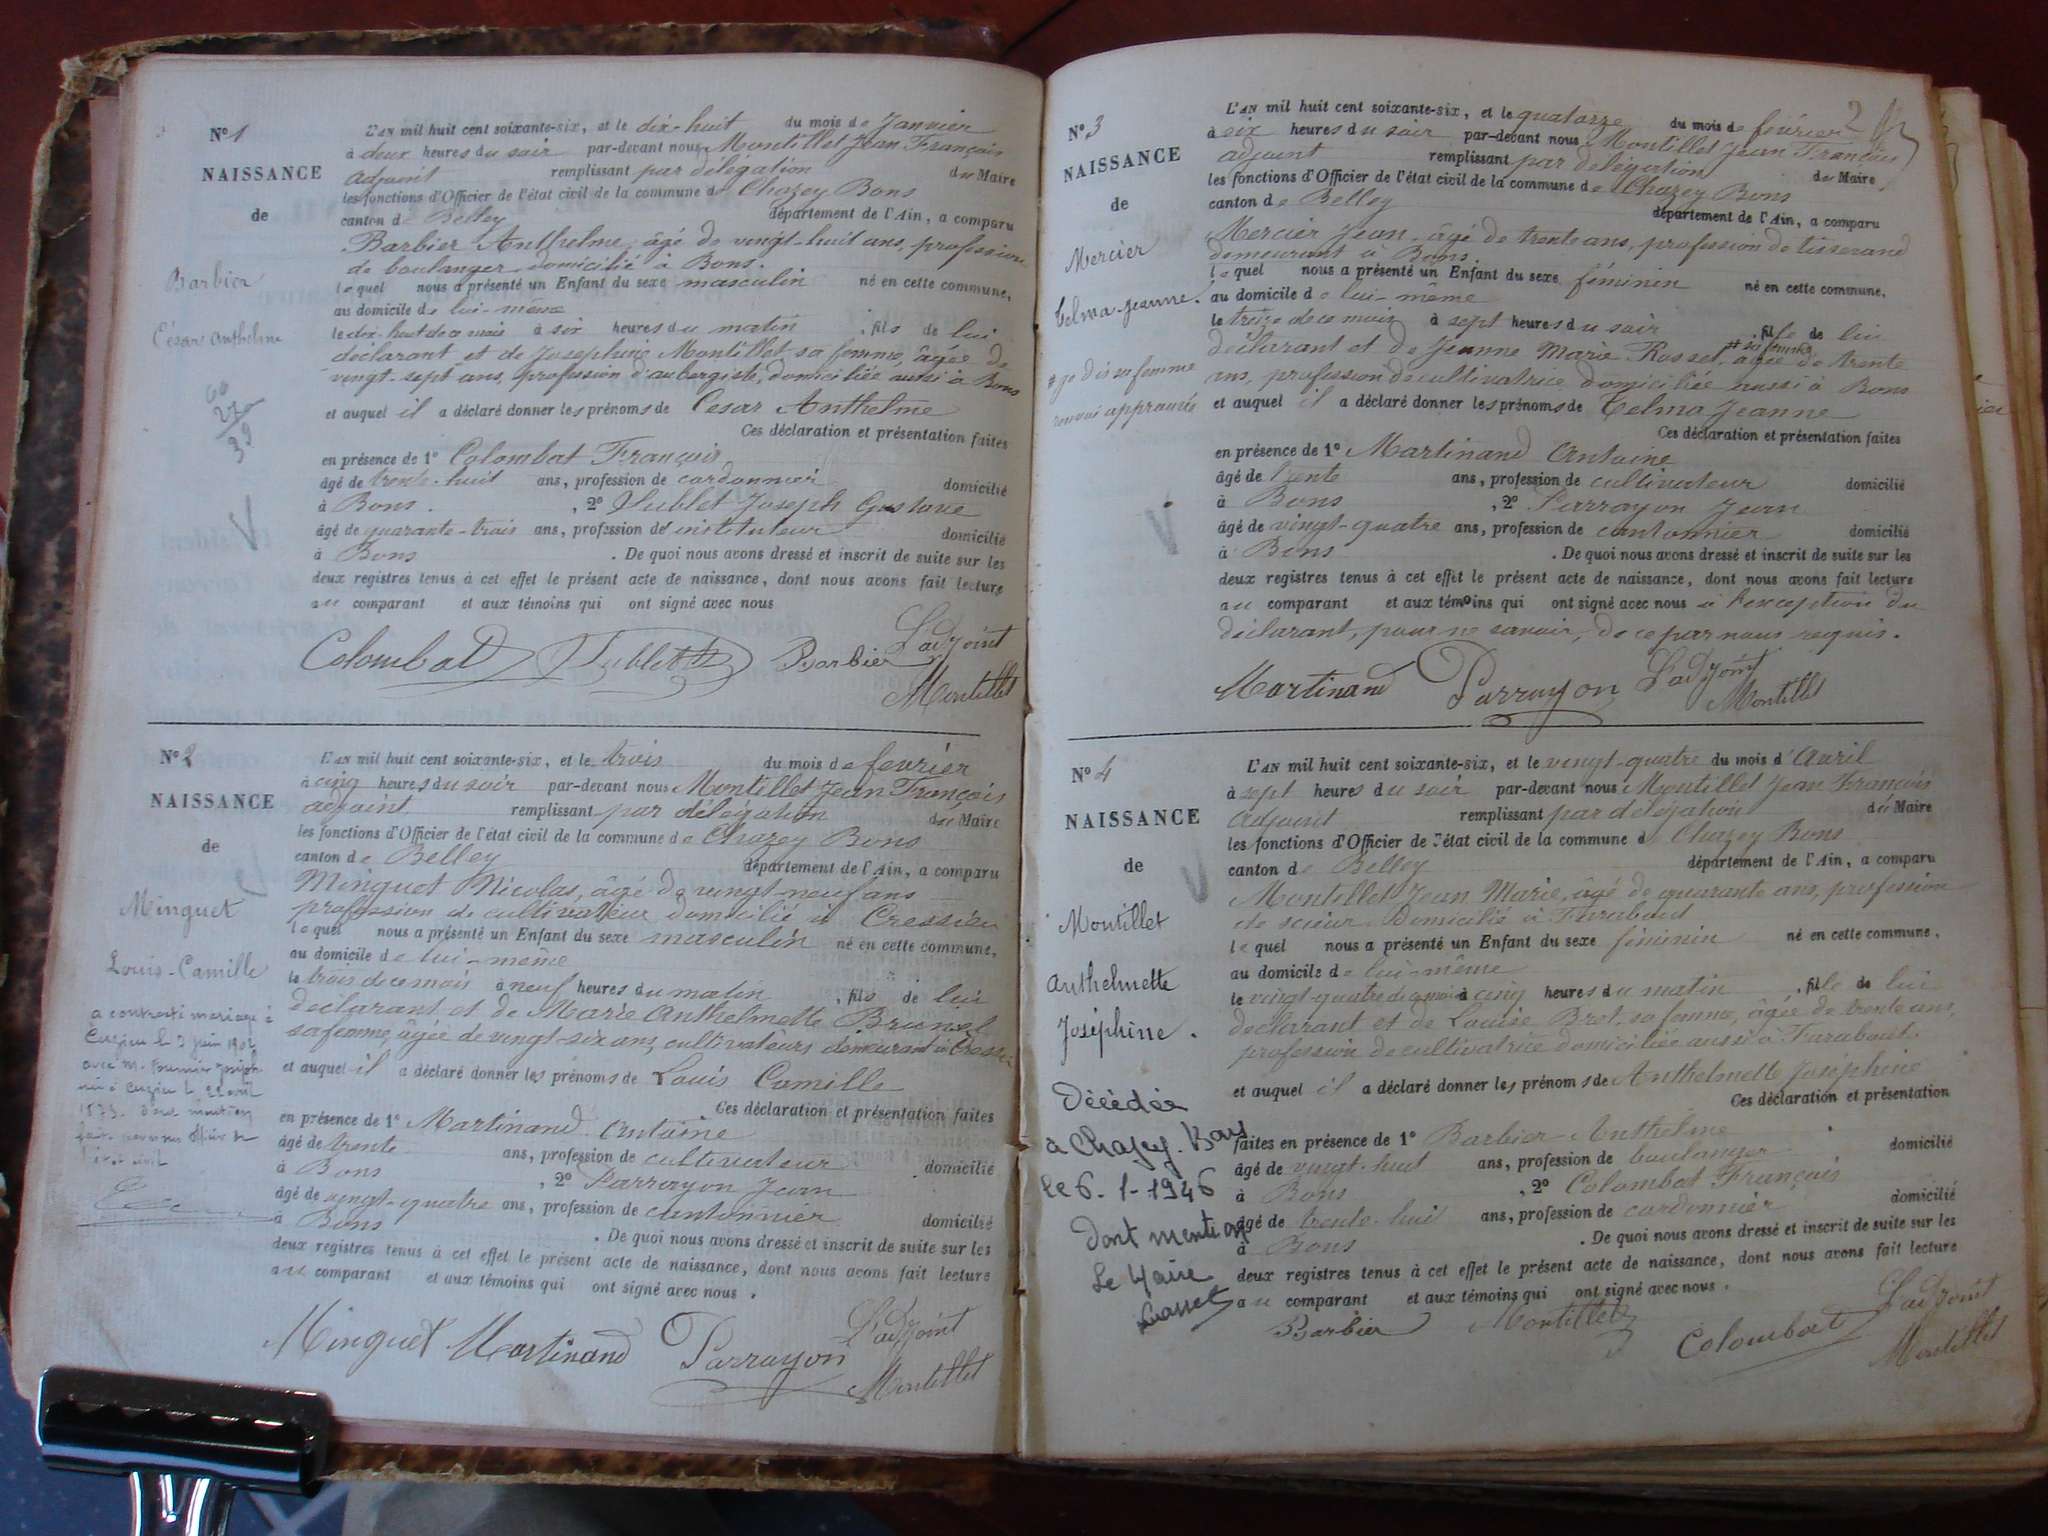 N° 1
NAISSANCE
de
Barbier
César Anthelme
L'AN mil huit cent soixante-six, et le dix-huit du mois de Janvier
à deux heures du soir par-devant nous Montillet Jean François
adjoint remplissant par délégation du Maire
les fonctions d'Officier de l'état civil de la commune de Chazey Bons
canton de Belley département de l'Ain, a comparu
Barbier Anthelme, âgé de vingt-huit ans, profession
de boulanger domicilié à Bons.
lequel nous a présenté un Enfant du sexe masculin né en cette commune,
au domicile de lui-même
le dix-huit de ce mois à six heures du matin, fils de lui
déclarant et de Josephine Montillet sa femme, âgée de
vingt-sept ans, profession d'aubergiste, domiciliée aussi à Bons
et auquel il a déclaré donner les prénoms de Cesar Anthelme
Ces déclaration et présentation faites
en présence de 1° Colombat François
âgé de trente-huit ans, profession de cordonnier domicilié
à Bons, 2° Sublet Joseph Gustave
âgé de quarante-trois ans, profession de instituteur domicilié
à Bons. De quoi nous avons dressé et inscrit de suite sur les
deux registres tenus à cet effet le présent acte de naissance, dont nous avons fait lecture
au comparant et aux témoins qui ont signé avec nous
Colombat Sublet Barbier L'adjoint
Montillet
N° 2
NAISSANCE
de
Minguet
Louis-Camille
a contracté mariage à
Cuzieu le 3 juin 1902
avec
né à Cuzieu le avril
1873. dont mention
faite par nous
l'état civil
L'AN mil huit cent soixante-six, et le trois du mois de fevrier
à cinq heures du soir par-devant nous Montillet Jean François
adjoint remplissant par délégation du Maire
les fonctions d'Officier de l'état civil de la commune de Chazey Bons
canton de Belley département de l'Ain, a comparu
Minguet Nicolas, âgé de vingt-neuf ans
profession de cultivateur domicilié à Cressieu
lequel nous a présenté un Enfant du sexe masculin né en cette commune,
au domicile de lui-même
le trois de ce mois à neuf heures du matin, fils de lui
déclarant et de Marie Anthelmette Brunet
sa femme, âgée de vingt-six ans, cultivateurs demeurant à Cressieu
et auquel il a déclaré donner les prénoms de Louis Camille
Ces déclaration et présentation faites
en présence de 1° Martinand Antoine
âgé de trente ans, profession de cultivateur domicilié
à Bons, 2° Parrayon Jean
âgé de vingt-quatre ans, profession de cantonnier domicilié
à Bons. De quoi nous avons dressé et inscrit de suite sur les
deux registres tenus à cet effet le présent acte de naissance, dont nous avons fait lecture
au comparant et aux témoins qui ont signé avec nous.
Minguet Martinand Parrayon L'adjoint
Montillet
2
N° 3
NAISSANCE
de
Mercier
Telma-Jeanne.
# je dis sa femme
renvoi approuvé
L'AN mil huit cent soixante-six, et le quatorze du mois de février
à six heures du soir par-devant nous Montillet Jean François
adjoint remplissant par délégation du Maire
les fonctions d'Officier de l'état civil de la commune de Chazey Bons
canton de Belley département de l'Ain, a comparu
Mercier Jean, âgé de trente ans, profession de tisserand
demeurant à Bons.
lequel nous a présenté un Enfant du sexe féminin né en cette commune,
au domicile de lui-même
le treize de ce mois à sept heures du soir, fille de lui
déclarant et de Jeanne Marie Rosset, # sa femme âgée de trente
ans, profession de cultivatrice domiciliée aussi à Bons
et auquel il a déclaré donner les prénoms de Telma Jeanne
Ces déclaration et présentation faites
en présence de 1° Martinand Antoine
âgé de trente ans, profession de cultivateur domicilié
à Bons, 2° Parrayon Jean
âgé de vingt-quatre ans, profession de cantonnier domicilié
à Bons. De quoi nous avons dressé et inscrit de suite sur les
deux registres tenus à cet effet le présent acte de naissance, dont nous avons fait lecture
au comparant et aux témoins qui ont signé avec nous à l'exception du
déclarant, pour ne savoir, de ce par nous requis.
Martinand Parrayon L'adjoint
Montillet
N° 4
NAISSANCE
de
Montillet
Anthelmette
Joséphine.
Décédée
à Chazey-Bons
le 6-1-1946
dont mention
Le Maire
L'AN mil huit cent soixante-six, et le vingt-quatre du mois d'Avril
à sept heures du soir par-devant nous Montillet Jean François
Adjoint remplissant par délégation du Maire
les fonctions d'Officier de l'état civil de la commune de Chazey Bons
canton de Belley département de l'Ain, a comparu
Montillet Jean Marie, âgé de quarante ans, profession
de scieur domicilié à
lequel nous a présenté un Enfant du sexe féminin né en cette commune,
au domicile de lui-même
le vingt-quatre de ce mois à cinq heures du matin, fille de lui
déclarant et de Louise Bret, sa femme, âgée de trente ans,
profession de cultivatrice domiciliée aussi à
et auquel il a déclaré donner les prénoms de Anthelmette Joséphine
Ces déclaration et présentation
faites en présence de 1° Barbier Anthelme
âgé de vingt-huit ans, profession de boulanger domicilié
à Bons, 2° Colombat François
âgé de trente-huit ans, profession de cordonnier domicilié
à Bons. De quoi nous avons dressé et inscrit de suite sur les
deux registres tenus à cet effet le présent acte de naissance, dont nous avons fait lecture
au comparant et aux témoins qui ont signé avec nous.
Barbier Montillet Colombat L'adjoint
Montillet